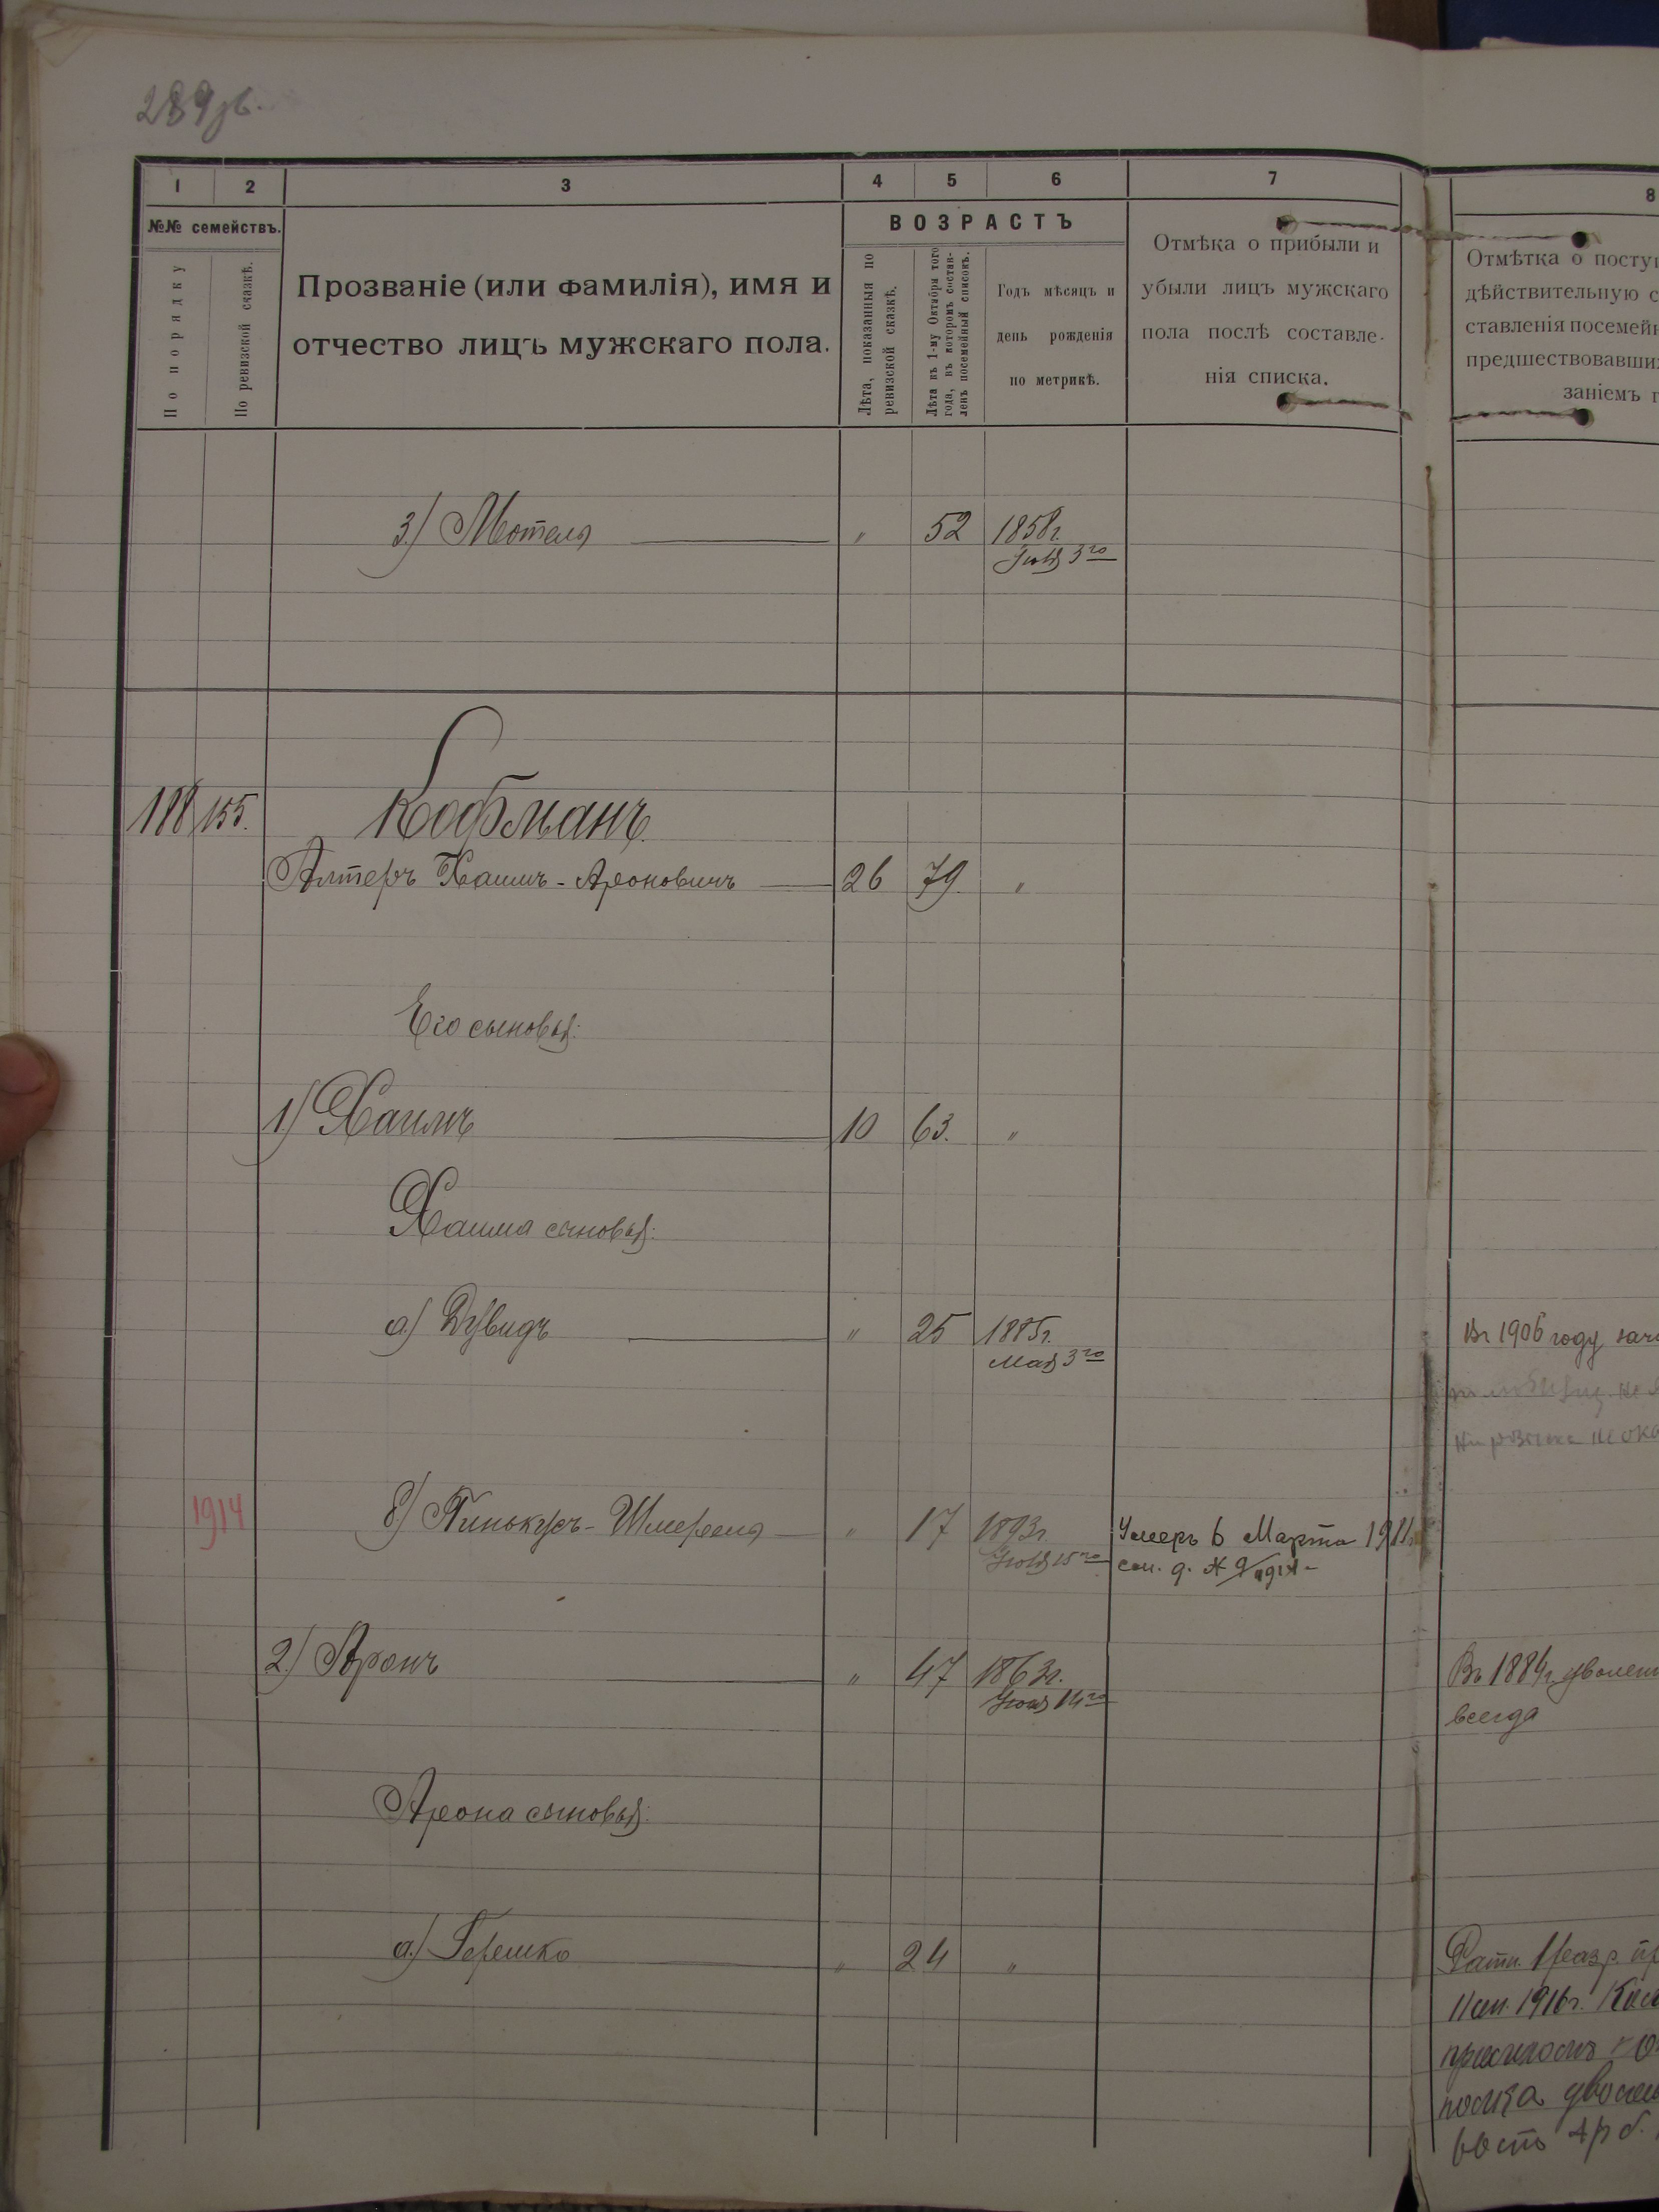 289 об.
1 2 3 4 5 6 7 8
№№ семействъ.
По порядку
По ревизской сказкѣ.
Прозваніе (или фамилія), имя и
отчество лицъ мужскаго пола.
ВОЗРАСТЪ
Лѣта, показанныя по
ревизской сказкѣ.
Лѣта къ 1-му Октября того
года, въ которомъ состав-
ленъ посемейный списокъ.
Годъ мѣсяцъ и
день рожденія
по метрикѣ.
Отмѣка о прибыли и
убыли лицъ мужскаго
пола послѣ составле-
нія списка.
Отмѣтка о посту
дѣйствительную с
ставленія посемей
предшествовавши
заніемъ
3) Мотеля " 52 1858г.
Іюля 3го
188 155. Кофманъ.
Алтеръ Хаимъ-Ароновичъ 26 79 "
Его сыновья:
1) Хаимъ 10 63. "
Хаима сыновья:
а) Дувидъ " 25 1885г.
Мая 3го
Въ 1906 году зач
1914 б) Пинькусъ-Шмереля " 17 1893г.
Іюля 15го
Умеръ 6 Марта 1911г
2) Аронъ " 47 1863г.
14го
Въ 1884г. уволен
всегда
Арона сыновья:
а) Гершко " 24 "
Ратн. 1 разр. пр
11 1916г.